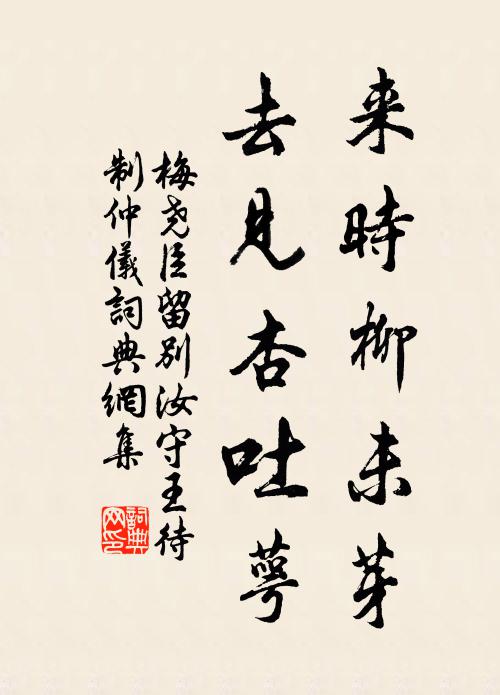 来時柳未芽
去見杏吐萼
梅尧臣留别汝守王待
制仲儀詞典網集
詞典
网印